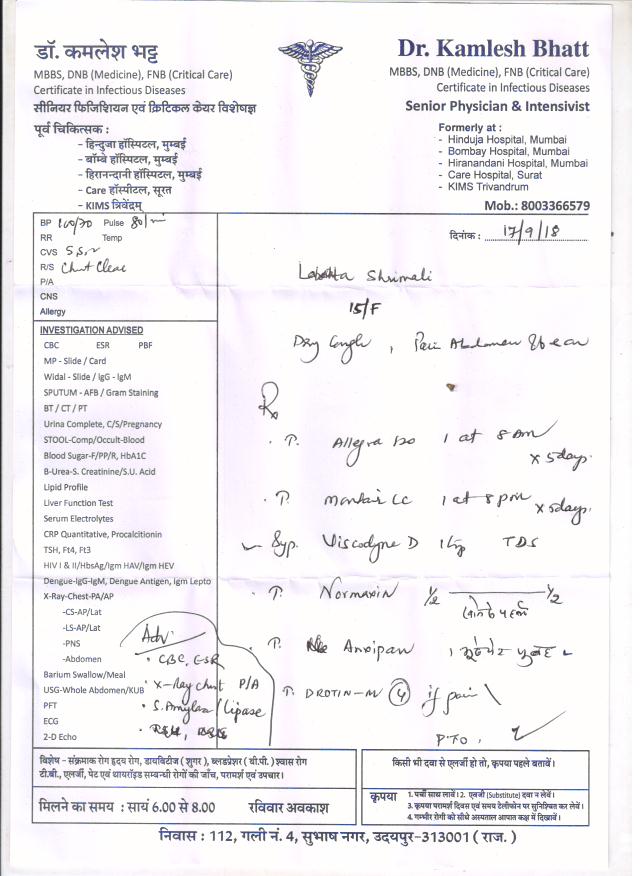 डॉ. कमलेश भट्ट
MBBS, DNB (Medicine), FNB (Critical Care)
Certificate in Infectious Diseases
सीनियर फिजिशियन एवं क्रिटिकल केयर विशेषज्ञ
पूर्व चिकित्सक :
- हिन्दुजा हॉस्पिटल, मुम्बई
- बॉम्बे हॉस्पिटल, मुम्बई
- हिरानन्दानी हॉस्पिटल, मुम्बई
- Care हॉस्पीटल, सूरत
- KIMS त्रिवेंद्रम्
Dr. Kamlesh Bhatt
MBBS, DNB (Medicine), FNB (Critical Care)
Certificate in Infectious Diseases
Senior Physician & Intensivist
Formerly at :
- Hinduja Hospital, Mumbai
- Bombay Hospital, Mumbai
- Hiranandani Hospital, Mumbai
- Care Hospital, Surat
- KIMS Trivandrum
Mob.: 8003366579
BP 100/70 Pulse 80/min
RR Temp
CVS S1S2
R/S Chest Clear
P/A
CNS
Allergy
दिनांक : 17/9/18
Shrimali
15/F
Dry Cough, Pain Abdomen
INVESTIGATION ADVISED
CBC ESR PBF
MP - Slide / Card
Widal - Slide / IgG - IgM
SPUTUM - AFB / Gram Staining
BT / CT / PT
Urina Complete, C/S/Pregnancy
STOOL-Comp/Occult-Blood
Blood Sugar-F/PP/R, HbA1C
B-Urea-S. Creatinine/S.U. Acid
Lipid Profile
Liver Function Test
Serum Electrolytes
CRP Quantitative, Procalcitonin
TSH, Ft4, Ft3
HIV I & II/HbsAg/Igm HAV/Igm HEV
Dengue-IgG-IgM, Dengue Antigen, Igm Lepto
X-Ray-Chest-PA/AP
-CS-AP/Lat
-LS-AP/Lat
-PNS
-Abdomen
Barium Swallow/Meal
USG-Whole Abdomen/KUB
PFT
ECG
2-D Echo
Adv:
CBC, ESR
X-Ray Chest P/A
S. Amylase / Lipase
Rx
T. Allegra 120 1 at 8 Am x 5 days.
T. Montair LC 1 at 8 pm x 5 days.
Syp. Viscodyne D 1 tsp TDS
T. Normaxin 1/2 1/2
T. Anxipan 1
T. DROTIN-M 4 if pain
PTO.
विशेष - संक्रमाक रोग हृदय रोग, डायबिटीज (शुगर), ब्लडप्रेशर (बी.पी.) श्वास रोग
टी.बी., एलर्जी, पेट एवं थायरॉइड सम्बन्धी रोगों की जाँच, परामर्श एवं उपचार।
मिलने का समय : सायं 6.00 से 8.00 रविवार अवकाश
किसी भी दवा से एलर्जी हो तो, कृपया पहले बतावें।
कृपया
1. पर्ची साथ लावें। 2. एवजी (Substitute) दवा न लेवें।
3. कृपया परामर्श दिवस एवं समय टेलीफोन पर सुनिश्चित कर लेवें।
4. गम्भीर रोगी को सीधे अस्पताल आपात कक्ष में दिखावें।
निवास : 112, गली नं. 4, सुभाष नगर, उदयपुर-313001 ( राज. )